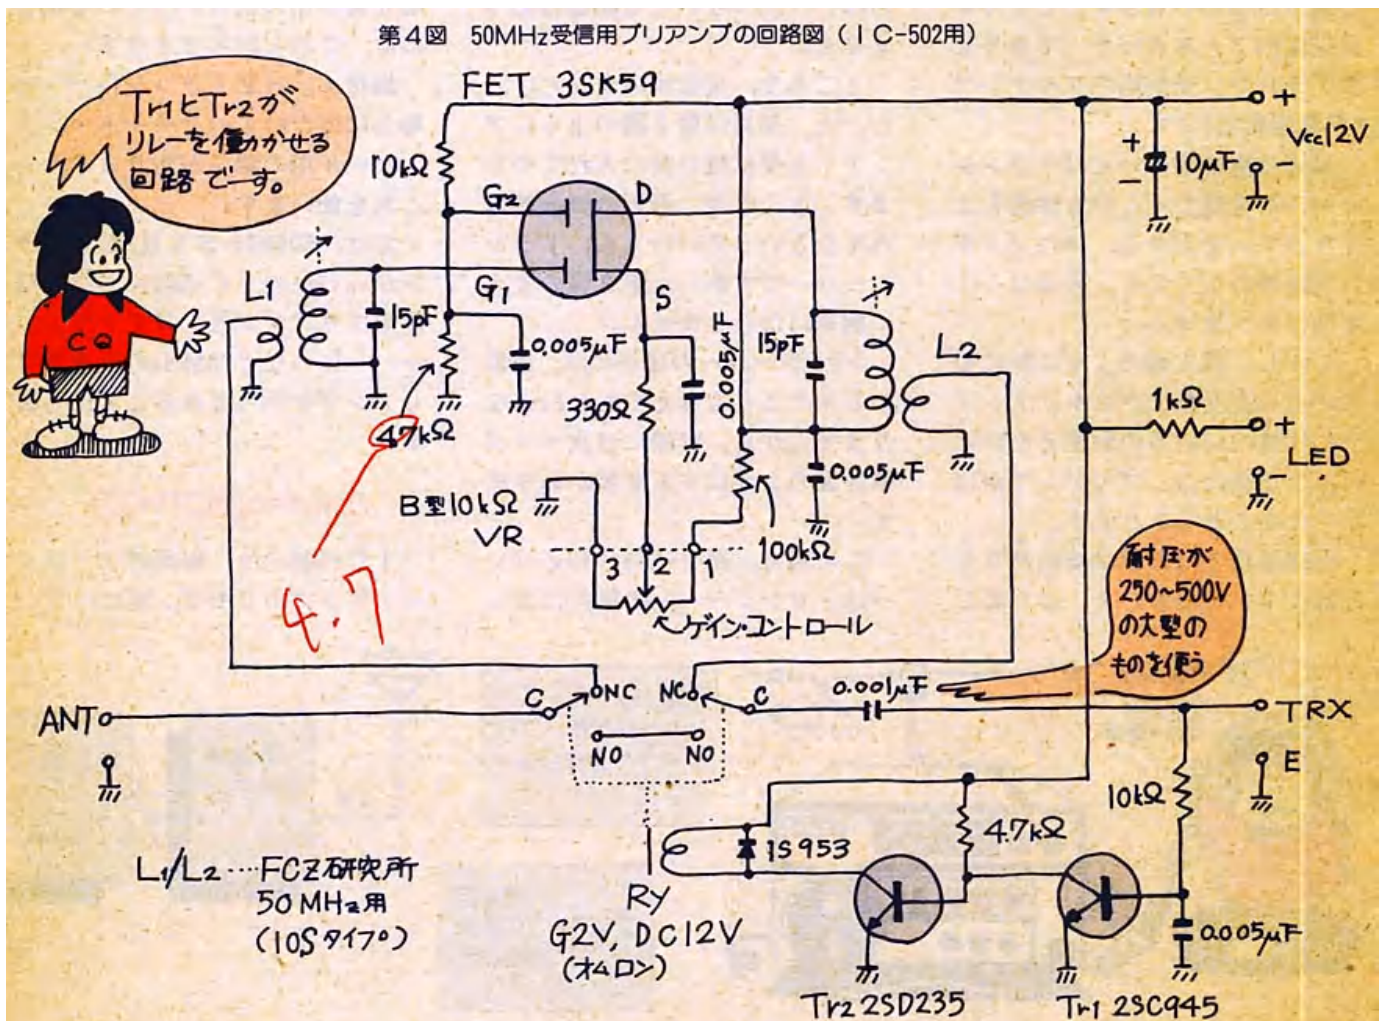 第4図 50MHz受信用プリアンプの回路図（IC-502用）
Tr1とTr2が
リレーを働かせる
回路でーす。
CQ
FET 3SK59
10kΩ
G2
D
G1
S
L1
15pF
0.005μF
47kΩ
4.7
330Ω
0.005μF
15pF
L2
0.005μF
100kΩ
B型10kΩ
VR
3
2
1
ゲイン・コントロール
+
Vcc12V
-
+
-
10μF
1kΩ
+
LED
-
耐圧が
250~500V
の大型の
ものを使う
ANT
C
NC
NC
C
NO
NO
0.001μF
TRX
E
10kΩ
4.7kΩ
1S953
RY
G2V, DC12V
(オムロン)
0.005μF
Tr2 2SD235
Tr1 2SC945
L1/L2…FCZ研究所
50MHz用
(10Sタイプ)